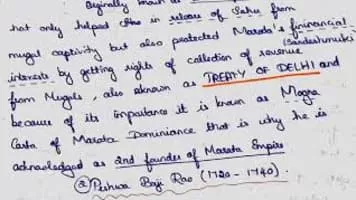 not only helped in release of Sahu from
mugal captivity but also protected Marata's fininancial
(Sardeshmuki)
interests by getting rights of collection of revenue
from Mugals, also aknown as TREATY OF DELHI and
because of its importance it is known as Magna
Carta of Marata Dominiance that is why he is
acknoledged as 2nd founder of Marata Empire
② Peshwa Baji Rao (1720 - 1740).